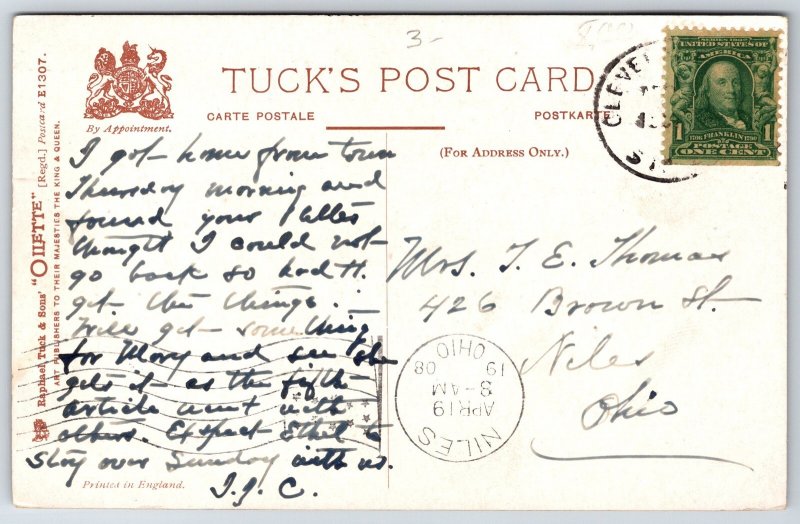 3-
TUCK'S POST CARD
CARTE POSTALE
POSTKARTE
(FOR ADDRESS ONLY.)
By Appointment.
Raphael Tuck & Sons' "OILETTE" [Regd.] Postcard E1307.
ART PUBLISHERS TO THEIR MAJESTIES THE KING & QUEEN.
I got home from town
Thursday morning and
found your letter
thought I could not
go back so had H.
get the things.
Will get something
for Mary and see she
gets it as the fifth
article went with
others. Expect Ethel to
stay over Sunday with us.
I. J. C.
Printed in England.
CLEVEL
SERIES 1902
UNITED STATES OF
AMERICA
1706 FRANKLIN 1790
1 POSTAGE 1
ONE CENT
Mrs. T. E. Thomas
426 Brown St.
Niles
Ohio
NILES
APR 19
8-AM
19 08
OHIO